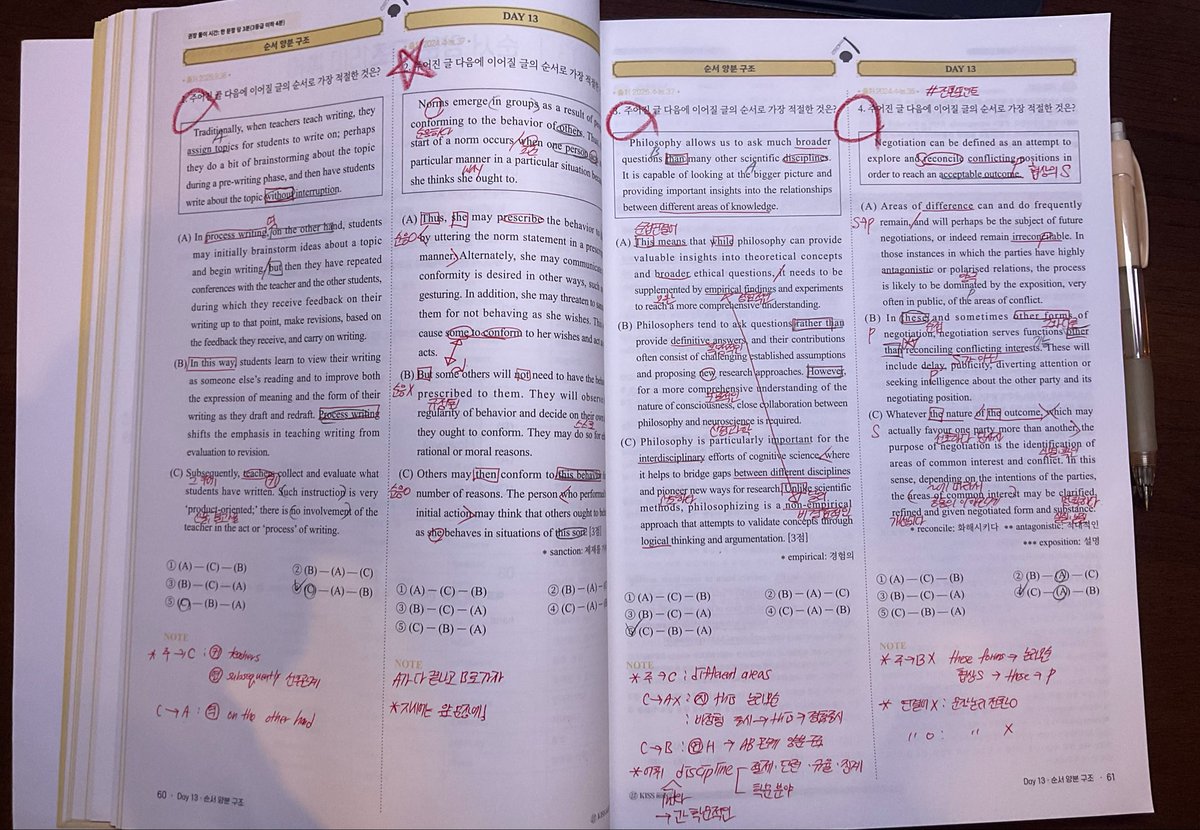 권장 풀이 시간: 한 문항 당 3분(3등급 이하 4분)
순서 양분 구조
주어진 글 다음에 이어질 글의 순서로 가장 적절한 것은?
Traditionally, when teachers teach writing, they
assign topics for students to write on; perhaps
they do a bit of brainstorming about the topic
during a pre-writing phase, and then have students
write about the topic without interruption.
(A) In process writing, on the other hand, students
may initially brainstorm ideas about a topic
and begin writing, but then they have repeated
conferences with the teacher and the other students,
during which they receive feedback on their
writing up to that point, make revisions, based on
the feedback they receive, and carry on writing.
(B) In this way, students learn to view their writing
as someone else's reading and to improve both
the expression of meaning and the form of their
writing as they draft and redraft. Process writing
shifts the emphasis in teaching writing from
evaluation to revision.
(C) Subsequently, teachers collect and evaluate what
students have written. Such instruction is very
'product-oriented;' there is no involvement of the
teacher in the act or 'process' of writing.
① (A) — (C) — (B) ② (B) — (A) — (C)
③ (B) — (C) — (A) ④ (C) — (A) — (B)
⑤ (C) — (B) — (A)
NOTE
* 주→C : teachers
subsequently 선후관계
C→A : on the other hand
60 · Day 13 · 순서 양분 구조
DAY 13
2. 주어진 글 다음에 이어질 글의 순서로 가장 적절
Norms emerge in groups as a result of
conforming to the behavior of others. Thus
start of a norm occurs when one person
particular manner in a particular situation
she thinks she ought to.
(A) Thus, she may prescribe the behavior to
by uttering the norm statement in a
manner. Alternately, she may communicate
conformity is desired in other ways, such
gesturing. In addition, she may threaten to
them for not behaving as she wishes. This
cause some to conform to her wishes and
acts.
(B) But some others will not need to have the
prescribed to them. They will observe
regularity of behavior and decide on their own
they ought to conform. They may do so for
rational or moral reasons.
(C) Others may then conform to this behavior
number of reasons. The person who performed
initial action may think that others ought to
as she behaves in situations of this sort. [3점]
* sanction: 제재를
① (A) — (C) — (B) ② (B) — (A)
③ (B) — (C) — (A) ④ (C) — (A)
⑤ (C) — (B) — (A)
NOTE
A가 다 끝나고 B로 가자
* 지시어는 앞 문장에!
순서 양분 구조
3. 주어진 글 다음에 이어질 글의 순서로 가장 적절한 것은?
Philosophy allows us to ask much broader
questions than many other scientific disciplines.
It is capable of looking at the bigger picture and
providing important insights into the relationships
between different areas of knowledge.
(A) This means that while philosophy can provide
valuable insights into theoretical concepts
and broader ethical questions, it needs to be
supplemented by empirical findings and experiments
to reach a more comprehensive understanding.
(B) Philosophers tend to ask questions rather than
provide definitive answers and their contributions
often consist of challenging established assumptions
and proposing new research approaches. However,
for a more comprehensive understanding of the
nature of consciousness, close collaboration between
philosophy and neuroscience is required.
(C) Philosophy is particularly important for the
interdisciplinary efforts of cognitive science, where
it helps to bridge gaps between different disciplines
and pioneer new ways for research. Unlike scientific
methods, philosophizing is a non-empirical
approach that attempts to validate concepts through
logical thinking and argumentation. [3점]
* empirical: 경험의
① (A) — (C) — (B) ② (B) — (A) — (C)
③ (B) — (C) — (A) ④ (C) — (A) — (B)
⑤ (C) — (B) — (A)
NOTE
* 주→C : different areas
C→A X : this
C→B : H →
* 어휘 discipline
학문분야
DAY 13
#전환포인트
4. 주어진 글 다음에 이어질 글의 순서로 가장 적절한 것은?
Negotiation can be defined as an attempt to
explore and reconcile conflicting positions in
order to reach an acceptable outcome. 협상의 S
(A) Areas of difference can and do frequently
remain, and will perhaps be the subject of future
negotiations, or indeed remain irreconcilable. In
those instances in which the parties have highly
antagonistic or polarised relations, the process
is likely to be dominated by the exposition, very
often in public, of the areas of conflict.
(B) In these and sometimes other forms of
negotiation, negotiation serves functions other
than reconciling conflicting interests. These will
include delay, publicity, diverting attention or
seeking intelligence about the other party and its
negotiating position.
(C) Whatever the nature of the outcome, which may
actually favour one party more than another, the
purpose of negotiation is the identification of
areas of common interest and conflict. In this
sense, depending on the intentions of the parties,
the areas of common interest may be clarified,
refined and given negotiated form and substance.
* reconcile: 화해시키다 ** antagonistic: 적대적인
*** exposition: 설명
① (A) — (C) — (B) ② (B) — (A) — (C)
③ (B) — (C) — (A) ④ (C) — (A) — (B)
⑤ (C) — (B) — (A)
NOTE
* 주→B X these forms →
협상 S → these → P
Day 13 · 순서 양분 구조 · 61